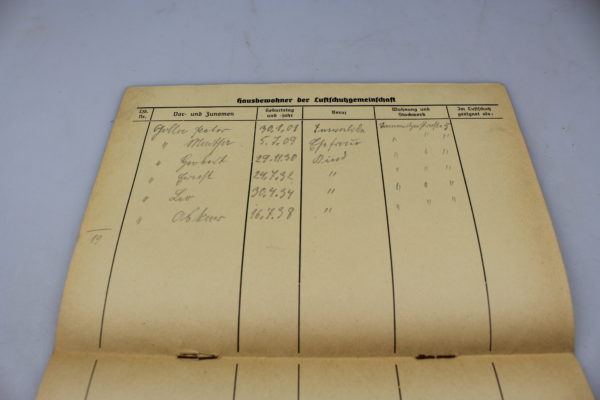 Hausbewohner der Luftschutzgemeinschaft
Lfd. Nr. Vor- und Zunamen Geburtstag und -jahr Beruf Wohnung und Stockwerk Im Luftschutz geeignet als:
30.1.01
" 5.2.09 Ehefrau " " "
" Herbert 29.11.30 Kind " " "
" Horst 24.7.32 " " " "
" Leo 30.9.34 " " " "
" Oskar 16.7.38 " " " "
19